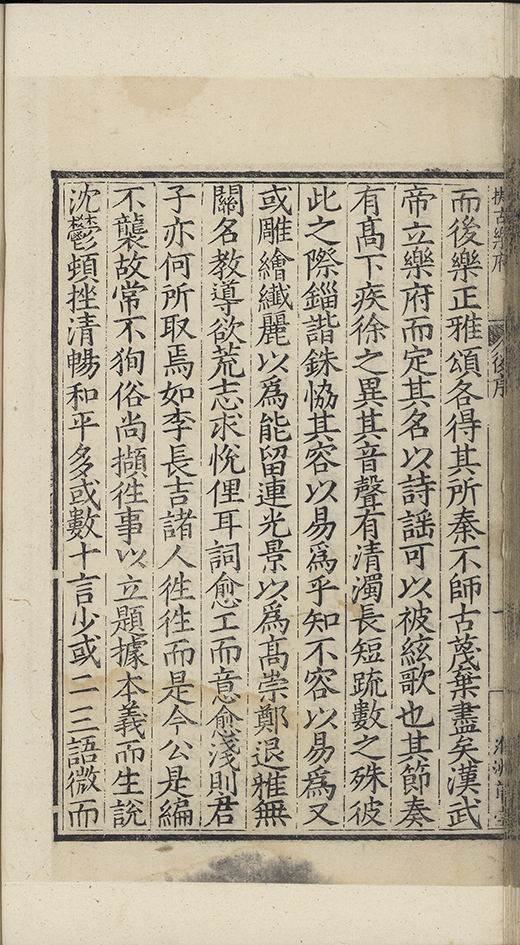 擬古樂府
後序
而後樂正雅頌各得其所秦不師古蔑棄盡矣漢武
帝立樂府而定其名以詩謡可以被絃歌也其節奏
有髙下疾徐之異其音聲有清濁長短疏數之殊彼
此之際錙諧銖恊其容以易爲乎知不容以易爲又
或雕繪纎麗以爲能留連光景以爲髙崇鄭退雅無
關名教導欲荒志求恱俚耳詞愈工而意愈淺則君
子亦何所取焉如李長吉諸人徃徃而是今公是編
不襲故常不狥俗尚擷徃事以立題據本義而生說
沈鬱頓挫清暢和平多或數十言少或二三語微而